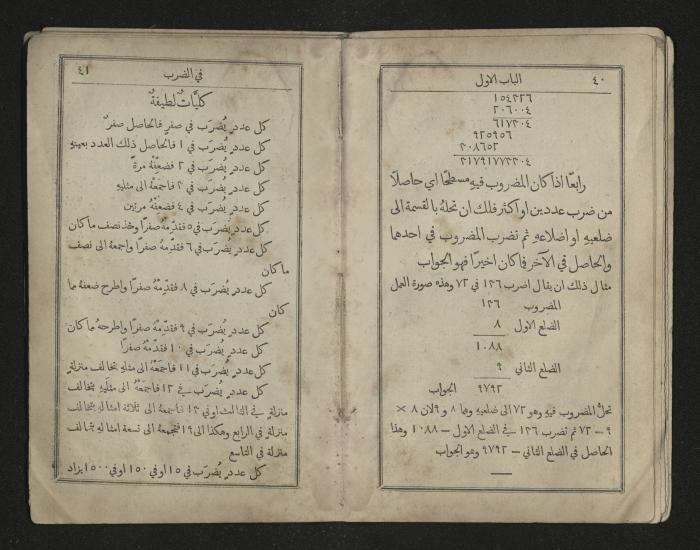 ٤٠ الباب الاول
١٥٤٣٢٦
٢٠٦٠٠٤
٦١٧٣٠٤
٩٢٥٩٥٦
٣٠٨٦٥٢
٣١٧٩١٧٧٣٣٠٤
رابعًا اذا كان المضروب فيهِ مسطحًا اي حاصلًا
من ضرب عددين او اكثر فلك ان تحلهُ بالقسمة الى
ضلعيهِ او اضلاعهِ ثم تضرب المضروب في احدهما
والحاصل في الآخر فما كان اخيرًا فهو الجواب
مثال ذلك ان يقال اضرب ١٣٦ في ٧٢ وهذه صورة العمل
المضروب ١٣٦
الضلع الاول ٨
١٠٨٨
الضلع الثاني ٩
٩٧٩٢ الجواب
تحلُّ المضروب فيهِ وهو ٧٢ الى ضلعيهِ وهما ٨ و ٩ لان ٨ ×
٩ = ٧٢ ثم تضرب ١٣٦ في الضلع الاول = ١٠٨٨ وهذا
الحاصل في الضلع الثاني = ٩٧٩٢ وهو الجواب
في الضرب ٤١
كلّيّاتٌ لطيفةٌ
كل عددٍ يُضرَب في صفرٍ فالحاصل صفرٌ
كل عددٍ يُضرَب في ١ فالحاصل ذلك العدد بعينهِ
كل عددٍ يُضرَب في ٢ فضعِّفْهُ مرةً
كل عددٍ يُضرَب في ٣ فاجمَعْهُ الى مثليهِ
كل عددٍ يُضرَب في ٤ فضعِّفْهُ مرتين
كل عددٍ يُضرَب في ٥ فقدِّمْهُ صفرًا وخذ نصف ما كان
كل عددٍ يُضرَب في ٦ فقدِّمهُ صفرًا واجمعهُ الى نصف
ما كان
كل عددٍ يُضرَب في ٨ فقدِّمْهُ صفرًا واطرح ضعفهُ مما
كان
كل عددٍ يُضرَب في ٩ فقدِّمْهُ صفرًا واطرحهُ مما كان
كل عددٍ يُضرَب في ١٠ فقدِّمْهُ صفرًا
كل عددٍ يُضرَب في ١١ فاجمَعْهُ الى مثلهِ بتخالف منزلةٍ
كل عددٍ يُضرَب في ١٢ فاجمَعْهُ الى مثلَيهِ بتخالف
منزلةٍ في الثالث او في ١٣ فاجمعهُ الى ثلاثة امثالهِ بتخالف
منزلةٍ في الرابع وهكذا الى ١٩ فتجمعهُ الى تسعة امثالهِ بتخالف
منزلة في التاسع
كل عددٍ يُضرَب في ١٥ او في ١٥٠ او في ١٥٠٠ يزاد